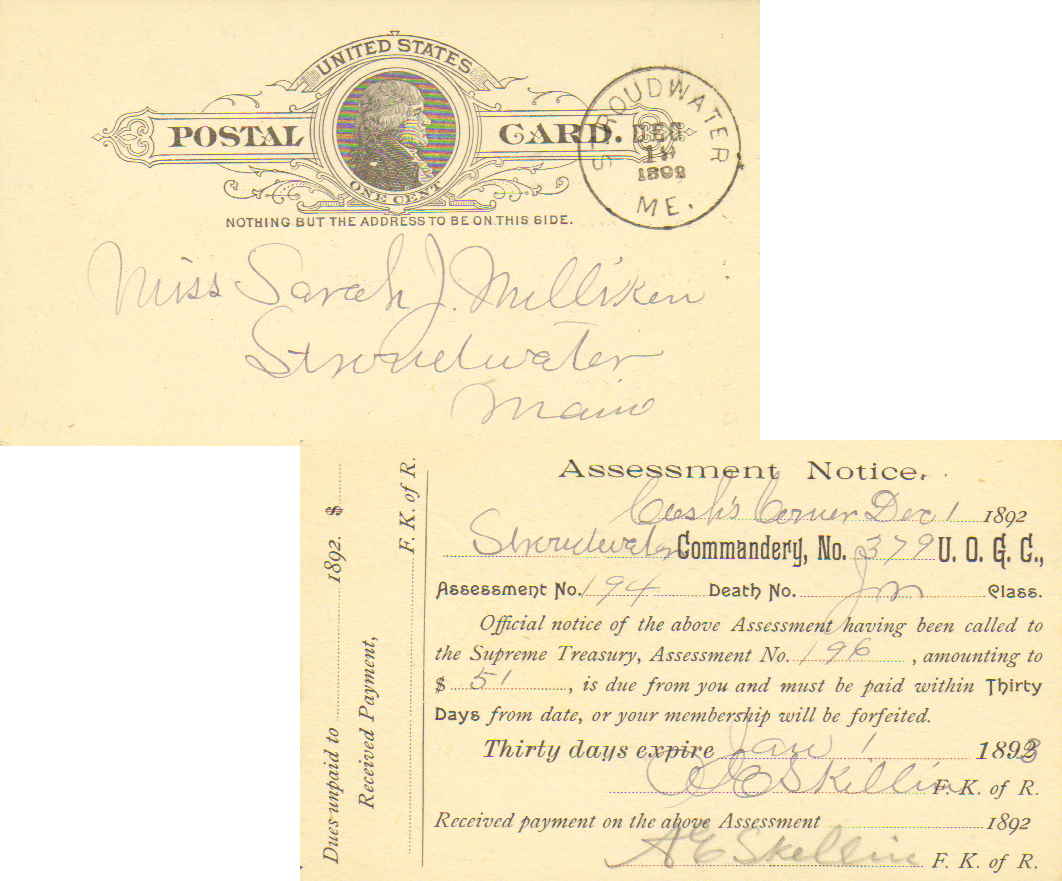 UNITED STATES
POSTAL CARD.
ONE CENT
NOTHING BUT THE ADDRESS TO BE ON THIS SIDE.
STROUDWATER
DEC
1892
ME.
Miss Sarah J. Milliken
Stroudwater
Maine
Dues unpaid to 1892. $
Received Payment,
F. K. of R.
Assessment Notice.
Cash's Corner Dec 1 1892
Stroudwater Commandery, No. 379 U. O. G. C.,
Assessment No. 194 Death No. Class.
Official notice of the above Assessment having been called to
the Supreme Treasury, Assessment No. 196, amounting to
$ 51, is due from you and must be paid within Thirty
Days from date, or your membership will be forfeited.
Thirty days expire Jan 1 1893
A E Skillin F. K. of R.
Received payment on the above Assessment 1892
A E Skillin F. K. of R.